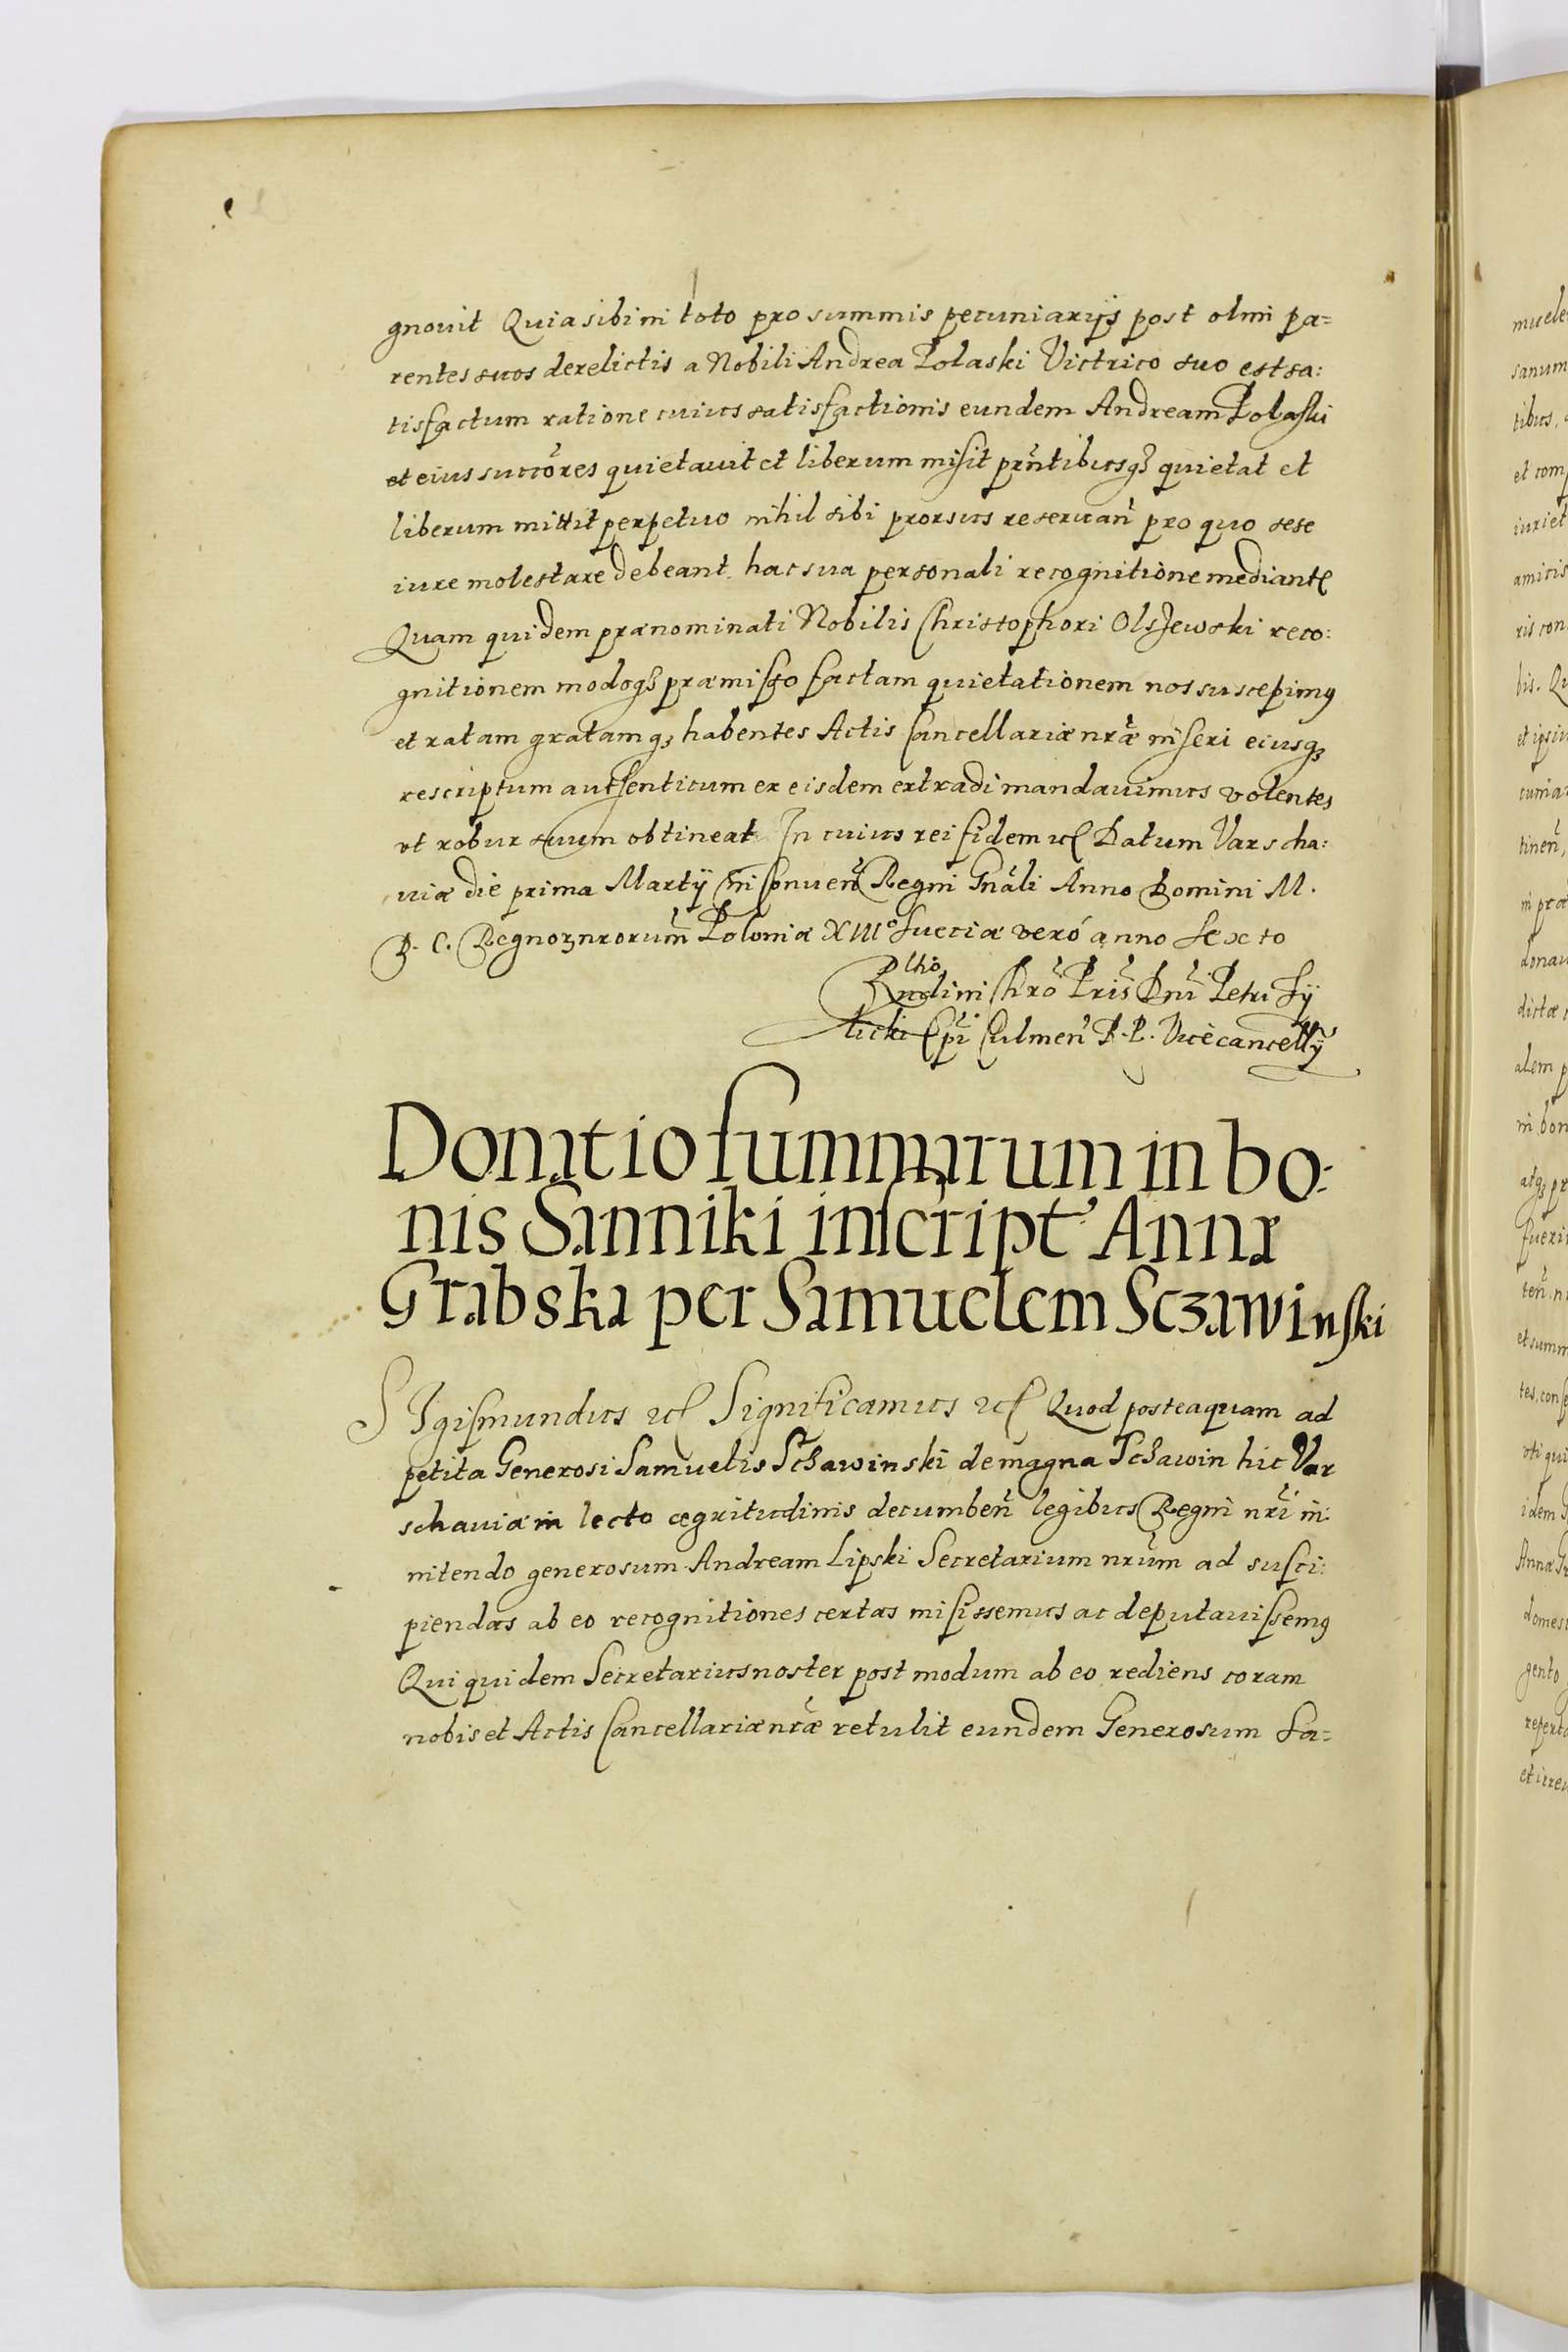 gnouit Quia sibi in toto pro summis pecuniarijs post olim pa=
rentes suos derelictis a Nobili Andrea Polaski Victrico suo est sa:
tisfactum ratione cuius satisfactionis eundem Andream Polaski
et eius succōres quietauit et liberum misit prn̄tibusqʒ quietat et
liberum mittit perpetuo nihil sibi prorsus reseruan̄ pro quo sese
iure molestare debeant hac sua personali recognitione mediante
Quam quidem prænominati Nobilis Christophori Olszewski reco:
gnitionem modoqʒ præmisso factam quietationem nos suscepimꝰ
et ratam gratamqʒ habentes Actis Cancellariæ nrǣ inseri eiusqʒ
rescriptum autsenticum ex eisdem extradi mandauimus volentes
vt robur suum obtineat In cuius rei fidem ec Datum Varscha:
uiæ die prima Martij in Conuen̄ Regni Gnāli Anno Domini M.
D. C. Regnoʒ nrorum̄ Poloniæ XIIIº Sueciæ veró anno Sexto
Rndi in Chrō Pris̄ Dni Petri Ty
licki Epī Culmen̄ R. P. Vicecancellȳ
Donatio summarum in bo:
nis Sanniki inscript' Anna
Grabska per Samuelem Sczawinski
SIgismundus ec Significamus ec Quod posteaquam ad
petita Generosi Samuelis Sczawinski de magna Sczawin hic Var
schauiæ in lecto ægritudinis decumben̄ legibus Regni nrī in:
nitendo generosum Andream Lipski Secretarium nrūm ad susci:
piendas ab eo recognitiones certas misissemus ac deputauissemꝰ
Qui quidem Secretarius noster post modum ab eo rediens coram
nobis et Actis Cancellariæ nrǣ retulit eundem Generosum Sa=